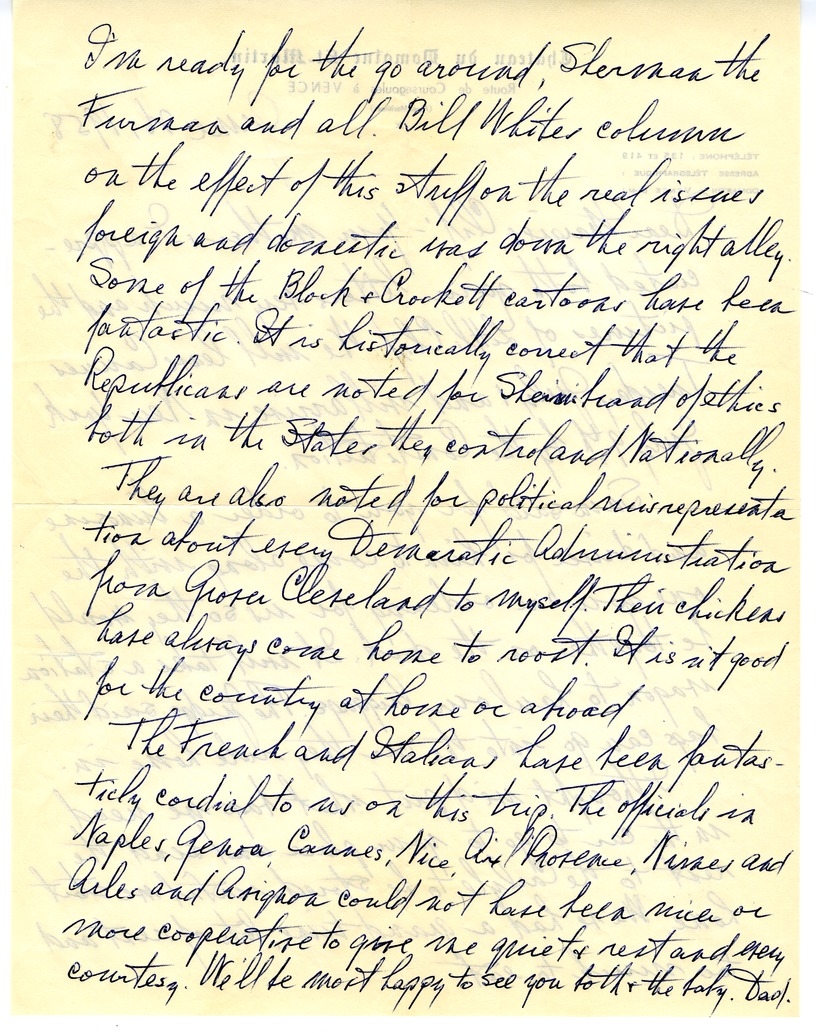 I'm ready for the go around, Sherman the
Furman and all. Bill Whites column
on the effect of this stuff on the real issues
foreign and domestic was down the right alley.
Some of the Block & Crockett cartoons have been
fantastic. It is historically correct that the
Republicans are noted for brand of ethics
both in the States they control and Nationally.
They are also noted for political misrepresenta
tion about every Democratic Administration
from Grover Cleveland to myself. Their chickens
have always come home to roost. It is n't good
for the country at home or abroad
The French and Italians have been fantas-
ticly cordial to us on this trip. The officials in
Naples, Genoa, Cannes, Nice, Aix Provence, Nimes and
Arles and Avignon could not have been nicer or
more cooperative to give me quiet & rest and every
courtesy. We'll be most happy to see you both & the baby. Dad.
Route de Coursegoules à VENCE
TÉLÉPHONE : 135 ET 419